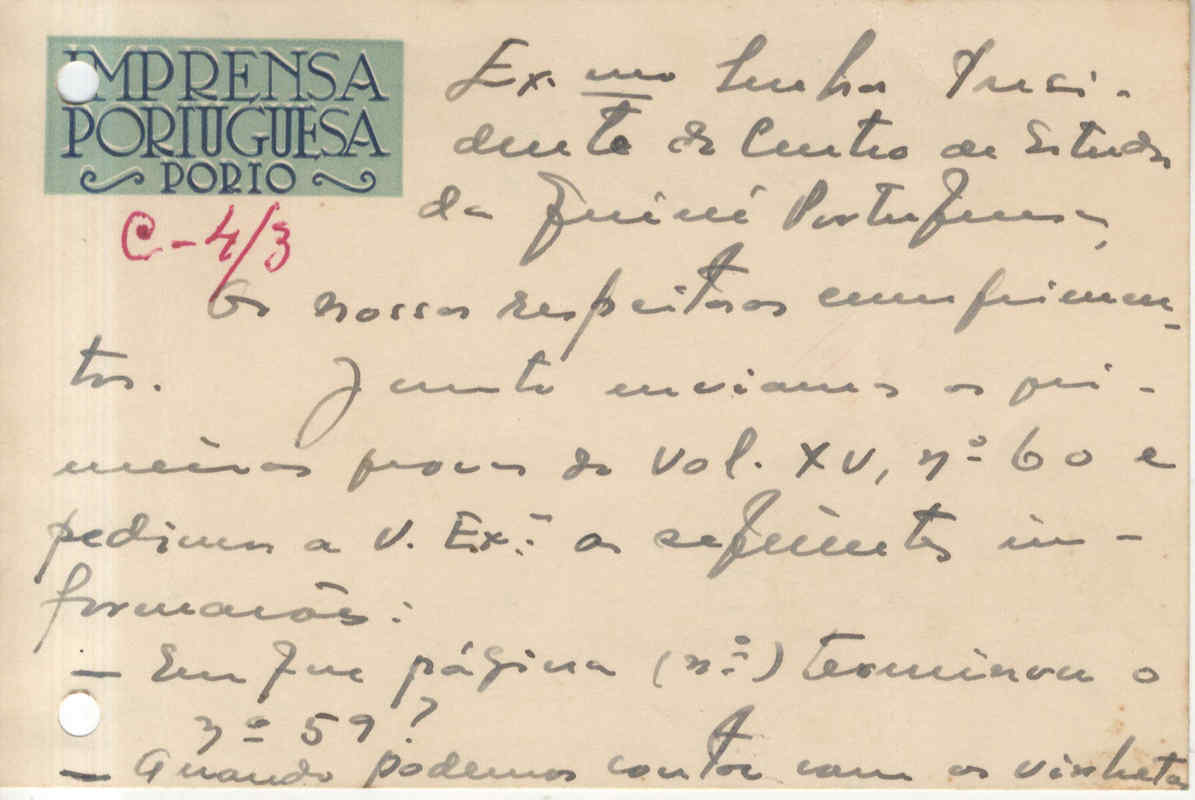 IMPRENSA
PORTUGUESA
PORTO
C-4/3
Ex.mo Senhor Presi-
dente do Centro de Estudos
da Guiné Portuguesa,
Os nossos respeitosos cumprimen-
tos. Junto enviamos as pri-
meiras provas do Vol. XV, nº 60 e
pedimos a V. Ex.ª as seguintes in-
formações:
— Em que página (nº) terminou o
nº 59?
— Quando podemos contar com as vinhetas